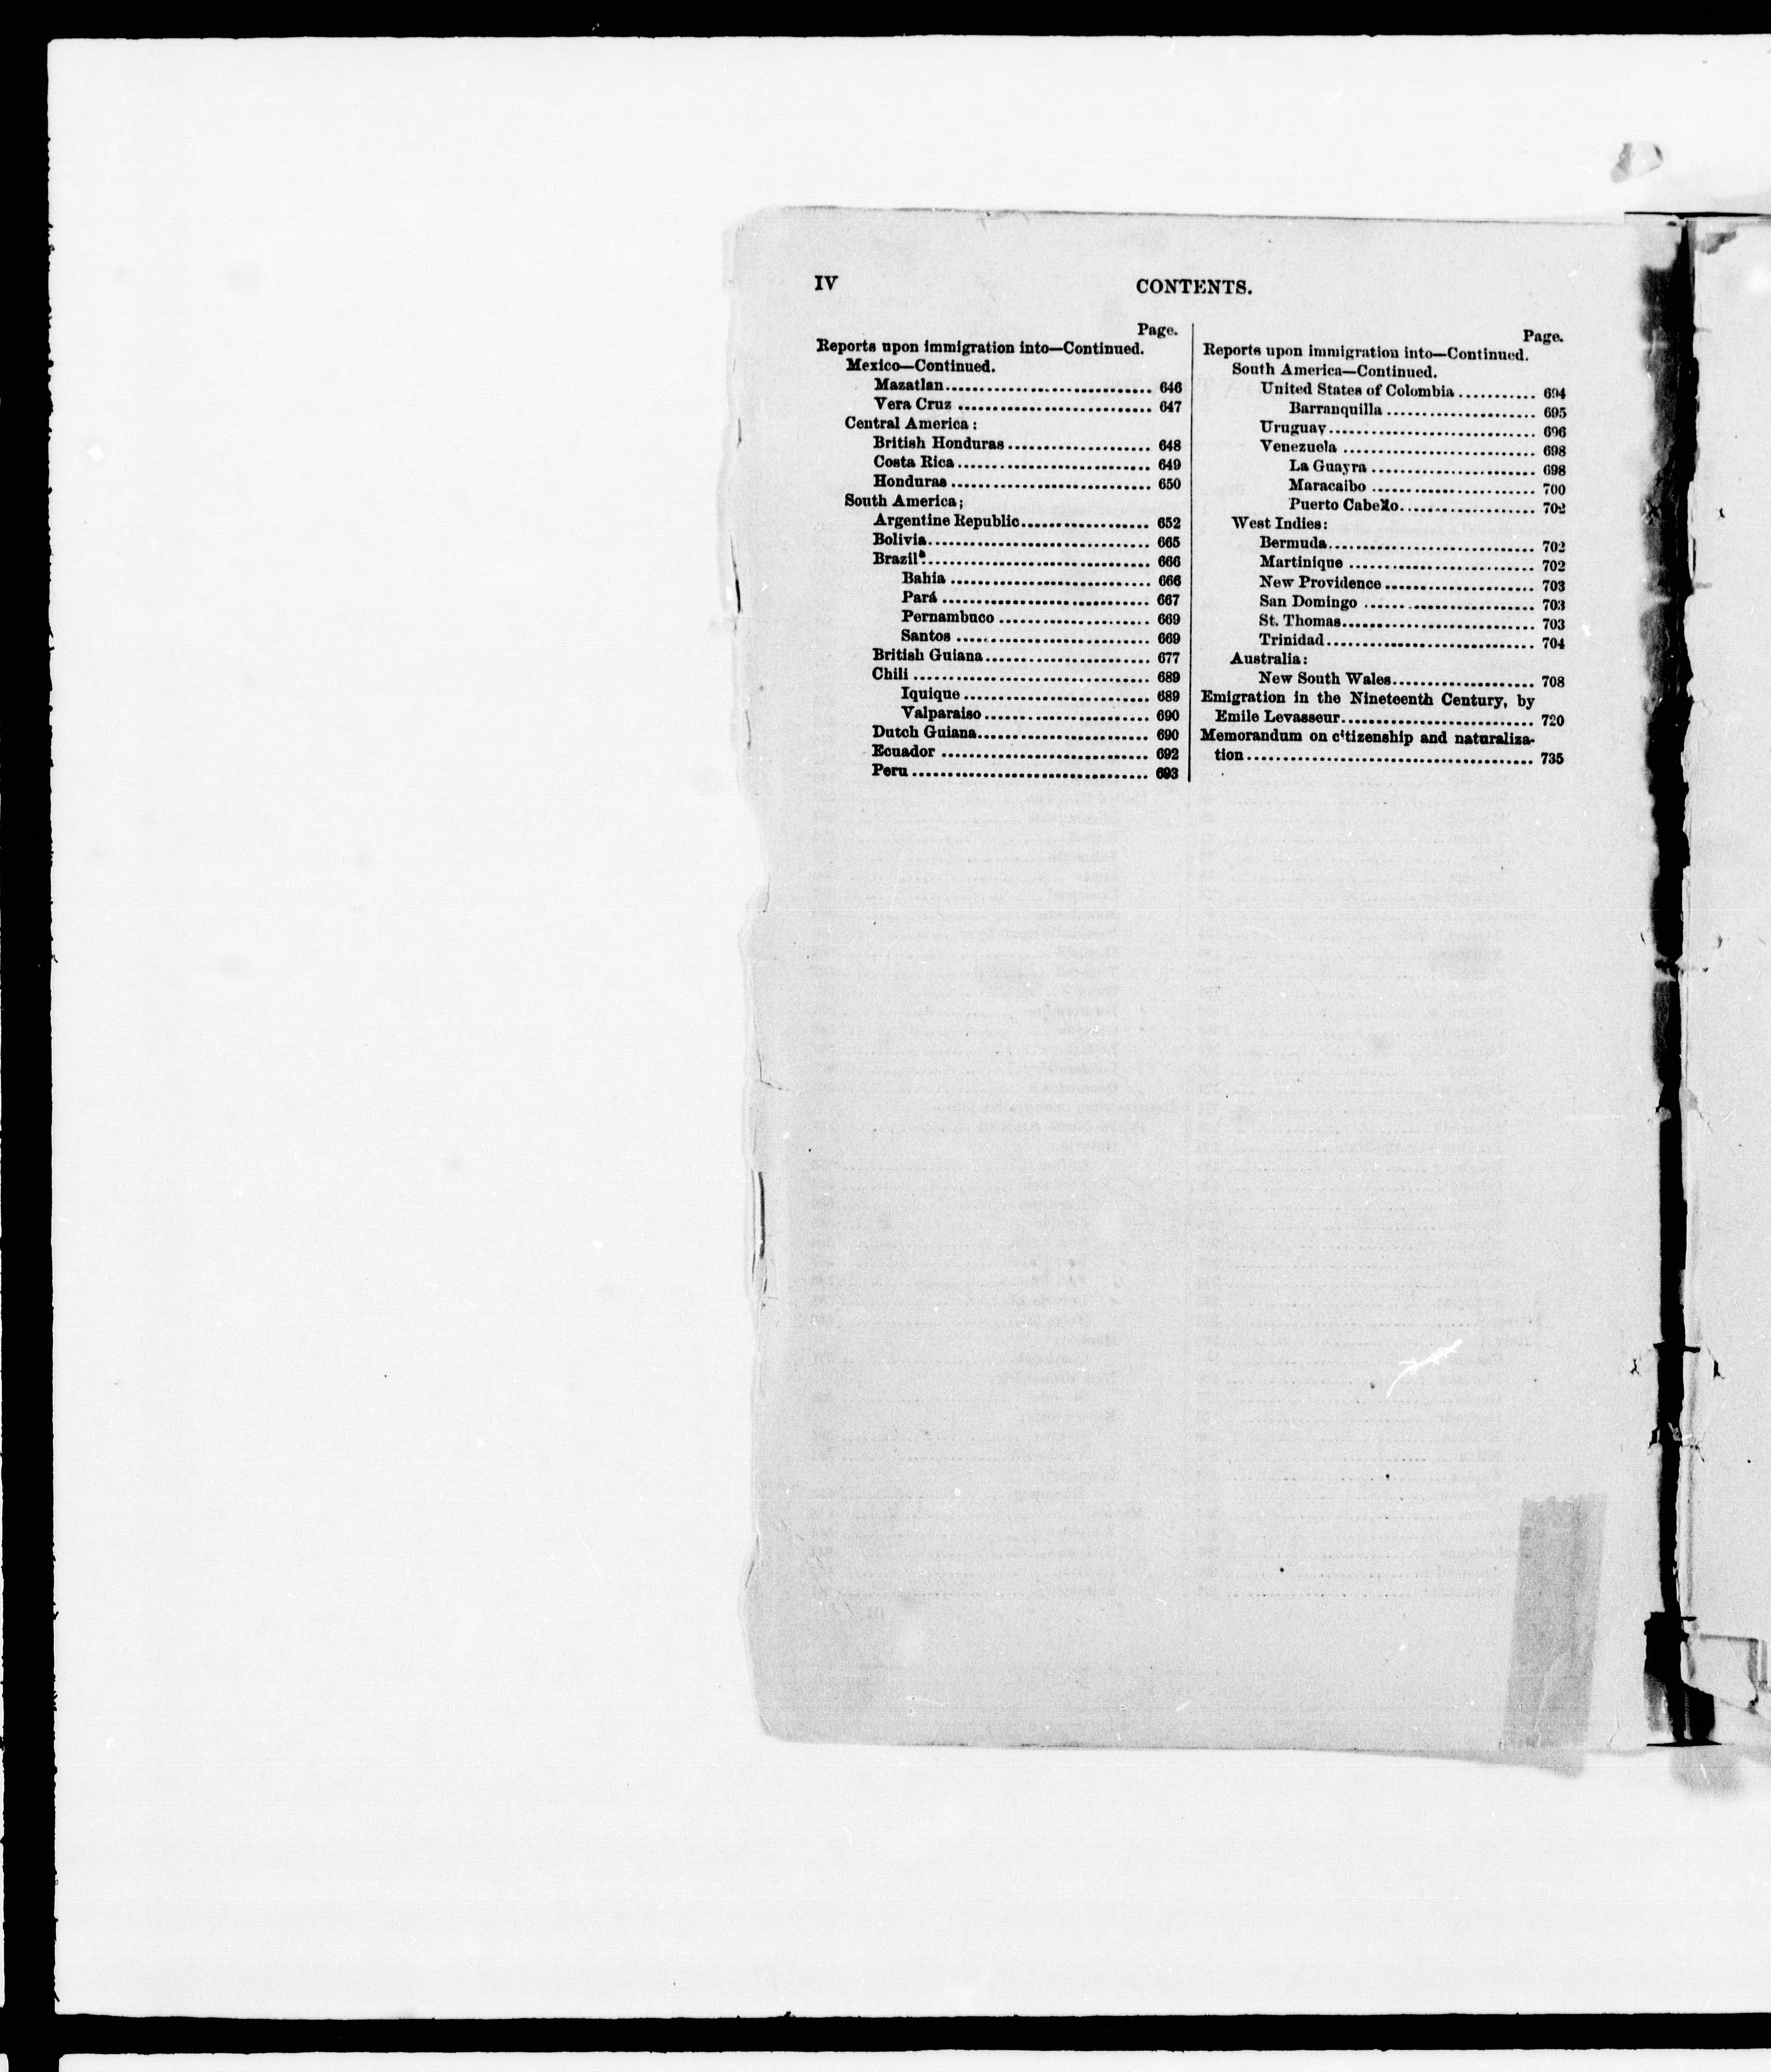 IV
CONTENTS.
Page.
Reports upon immigration into—Continued.
Mexico—Continued.
Mazatlan.............................. 646
Vera Cruz ............................ 647
Central America:
British Honduras ..................... 648
Costa Rica ........................... 649
Honduras ............................. 650
South America;
Argentine Republic................... 652
Bolivia................................ 665
Brazil................................. 666
Bahia ............................. 666
Pará .............................. 667
Pernambuco ...................... 669
Santos ............................ 669
British Guiana........................ 677
Chili .................................. 689
Iquique ........................... 689
Valparaiso ........................ 690
Dutch Guiana......................... 690
Ecuador .............................. 692
Peru .................................. 693
Page.
Reports upon immigration into—Continued.
South America—Continued.
United States of Colombia ........... 694
Barranquilla ..................... 695
Uruguay.............................. 696
Venezuela ............................ 698
La Guayra ........................ 698
Maracaibo ........................ 700
Puerto Cabello.................... 702
West Indies:
Bermuda.............................. 702
Martinique ........................... 702
New Providence ...................... 703
San Domingo ......................... 703
St. Thomas............................ 703
Trinidad.............................. 704
Australia:
New South Wales.................... 708
Emigration in the Nineteenth Century, by
Emile Levasseur............................ 720
Memorandum on citizenship and naturaliza-
tion......................................... 735